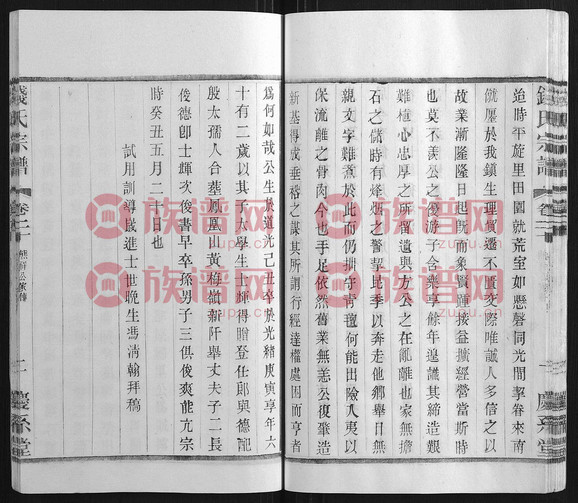 錢氏宗譜
卷二
一
慶系堂
迨時平旋里田園就荒室如懸磬同光間挈眷來南
僦廛於我鎮生理貿遷不貳交際唯誠人多信之以
故業漸隆隆日起既而象賢踵接益擴經營當斯時
也莫不羨公之優游子舍樂享餘年遑議其締造艱
難植心忠厚之所留遺與方公之在亂離也家無擔
石之儲時有烽煙之警挈比季以奔走他鄉舉目無
親文字難煮於此而仍拥守青氊何能出險入夷以
保流離之骨肉今也手足依然舊業無恙公復肇造
新基得成垂裕之謀其所謂行經達權處困而亨者
為何如哉公生於道光己丑卒於光緒庚寅享年六
十有二歲以其子太學生士輝得贈登仕郎與德配
殷太孺人合塟鳳凰山黃梅嶺新阡舉丈夫子二長
俊德即士輝次俊書早卒孫男子三俱俊爽能亢宗
時癸丑五月二十日也
試用訓導歲進士世晚生馮清翰拜稿
錢氏宗譜
卷二
二
慶系堂
族谱网
族谱网
族谱网
族谱网
族谱网
族谱网